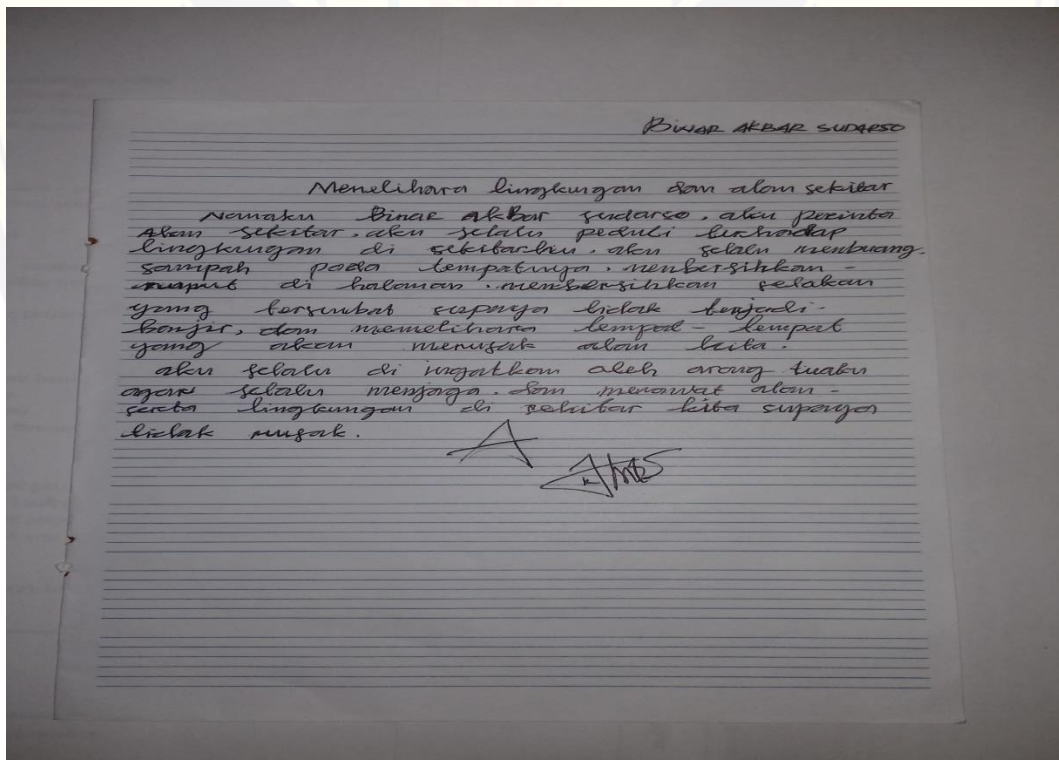 BINAR AKBAR SUDARSO
Menelihara lingkungan dan alam sekitar
Namaku Binar Akbar sudarso. aku pecinta
Alam sekitar. aku selalu peduli terhadap
lingkungan di sekitarku. aku selalu menbuang
sampah pada tempatnya. nenbersihkan -
rumput di halaman. membersihkan selakan
yang tersumbat supaya tidak terjadi -
banjir, dan memelihara tempat - tempat
yang akan merusak alam kita.
aku selalu di ingatkan oleh orang tuaku
agar selalu menjaga. dan merawat alam -
serta lingkungan di sekitar kita supaya
tidak rusak.